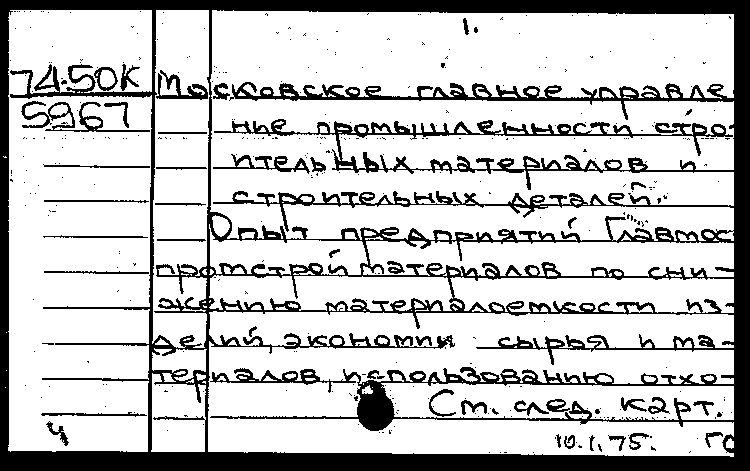 1.
74-50К Московское главное управле-
5967 ние промышленности стро-
ительных материалов и
строительных деталей.
Опыт предприятий Главмос-
промстройматериалов по сни-
жению материалоемкости из-
делий, экономии сырья и ма-
териалов, использованию отхо-
См. след. карт.
ч 10.1.75. ГО